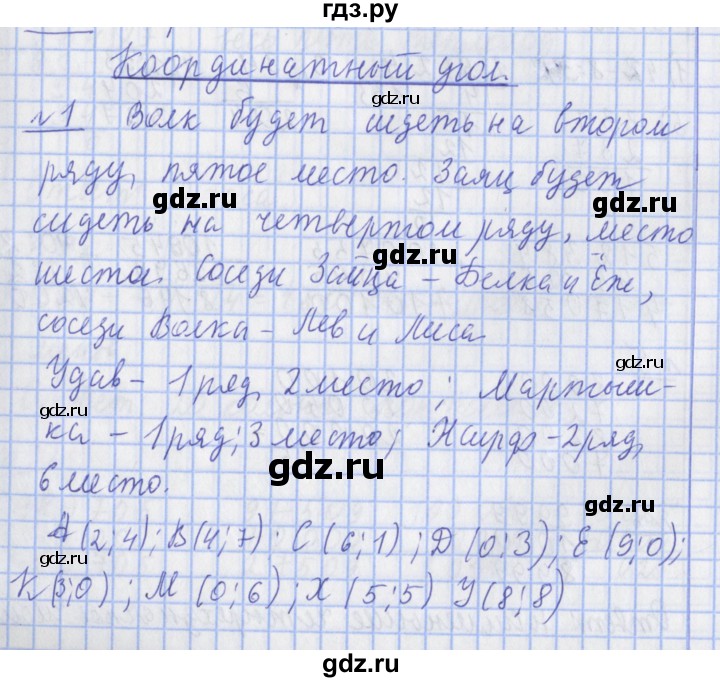 гдз.ру
Координатный угол.
gdz.ru
№1 Волк будет сидеть на втором
ряду, пятое место. Заяц будет
gdz.ru
gdz.ru
сидеть на четвертом ряду, место
gdz.ru
шестое. Соседи Зайца – Белка и Ёж,
соседи Волка – Лев и Лиса
gdz.ru
Удав – 1 ряд, 2 место; Мартыш-
gdz.ru
ка – 1 ряд; 3 место; Жираф – 2 ряд,
gdz.ru
6 место.
gdz.ru
A (2;4); B (4;7); C (6;1); Д (0;3); E (9;0);
gdz.ru
K (3;0); M (0;6); X (5;5) У (8;8)
gdz.ru
gdz.ru
gdz.ru